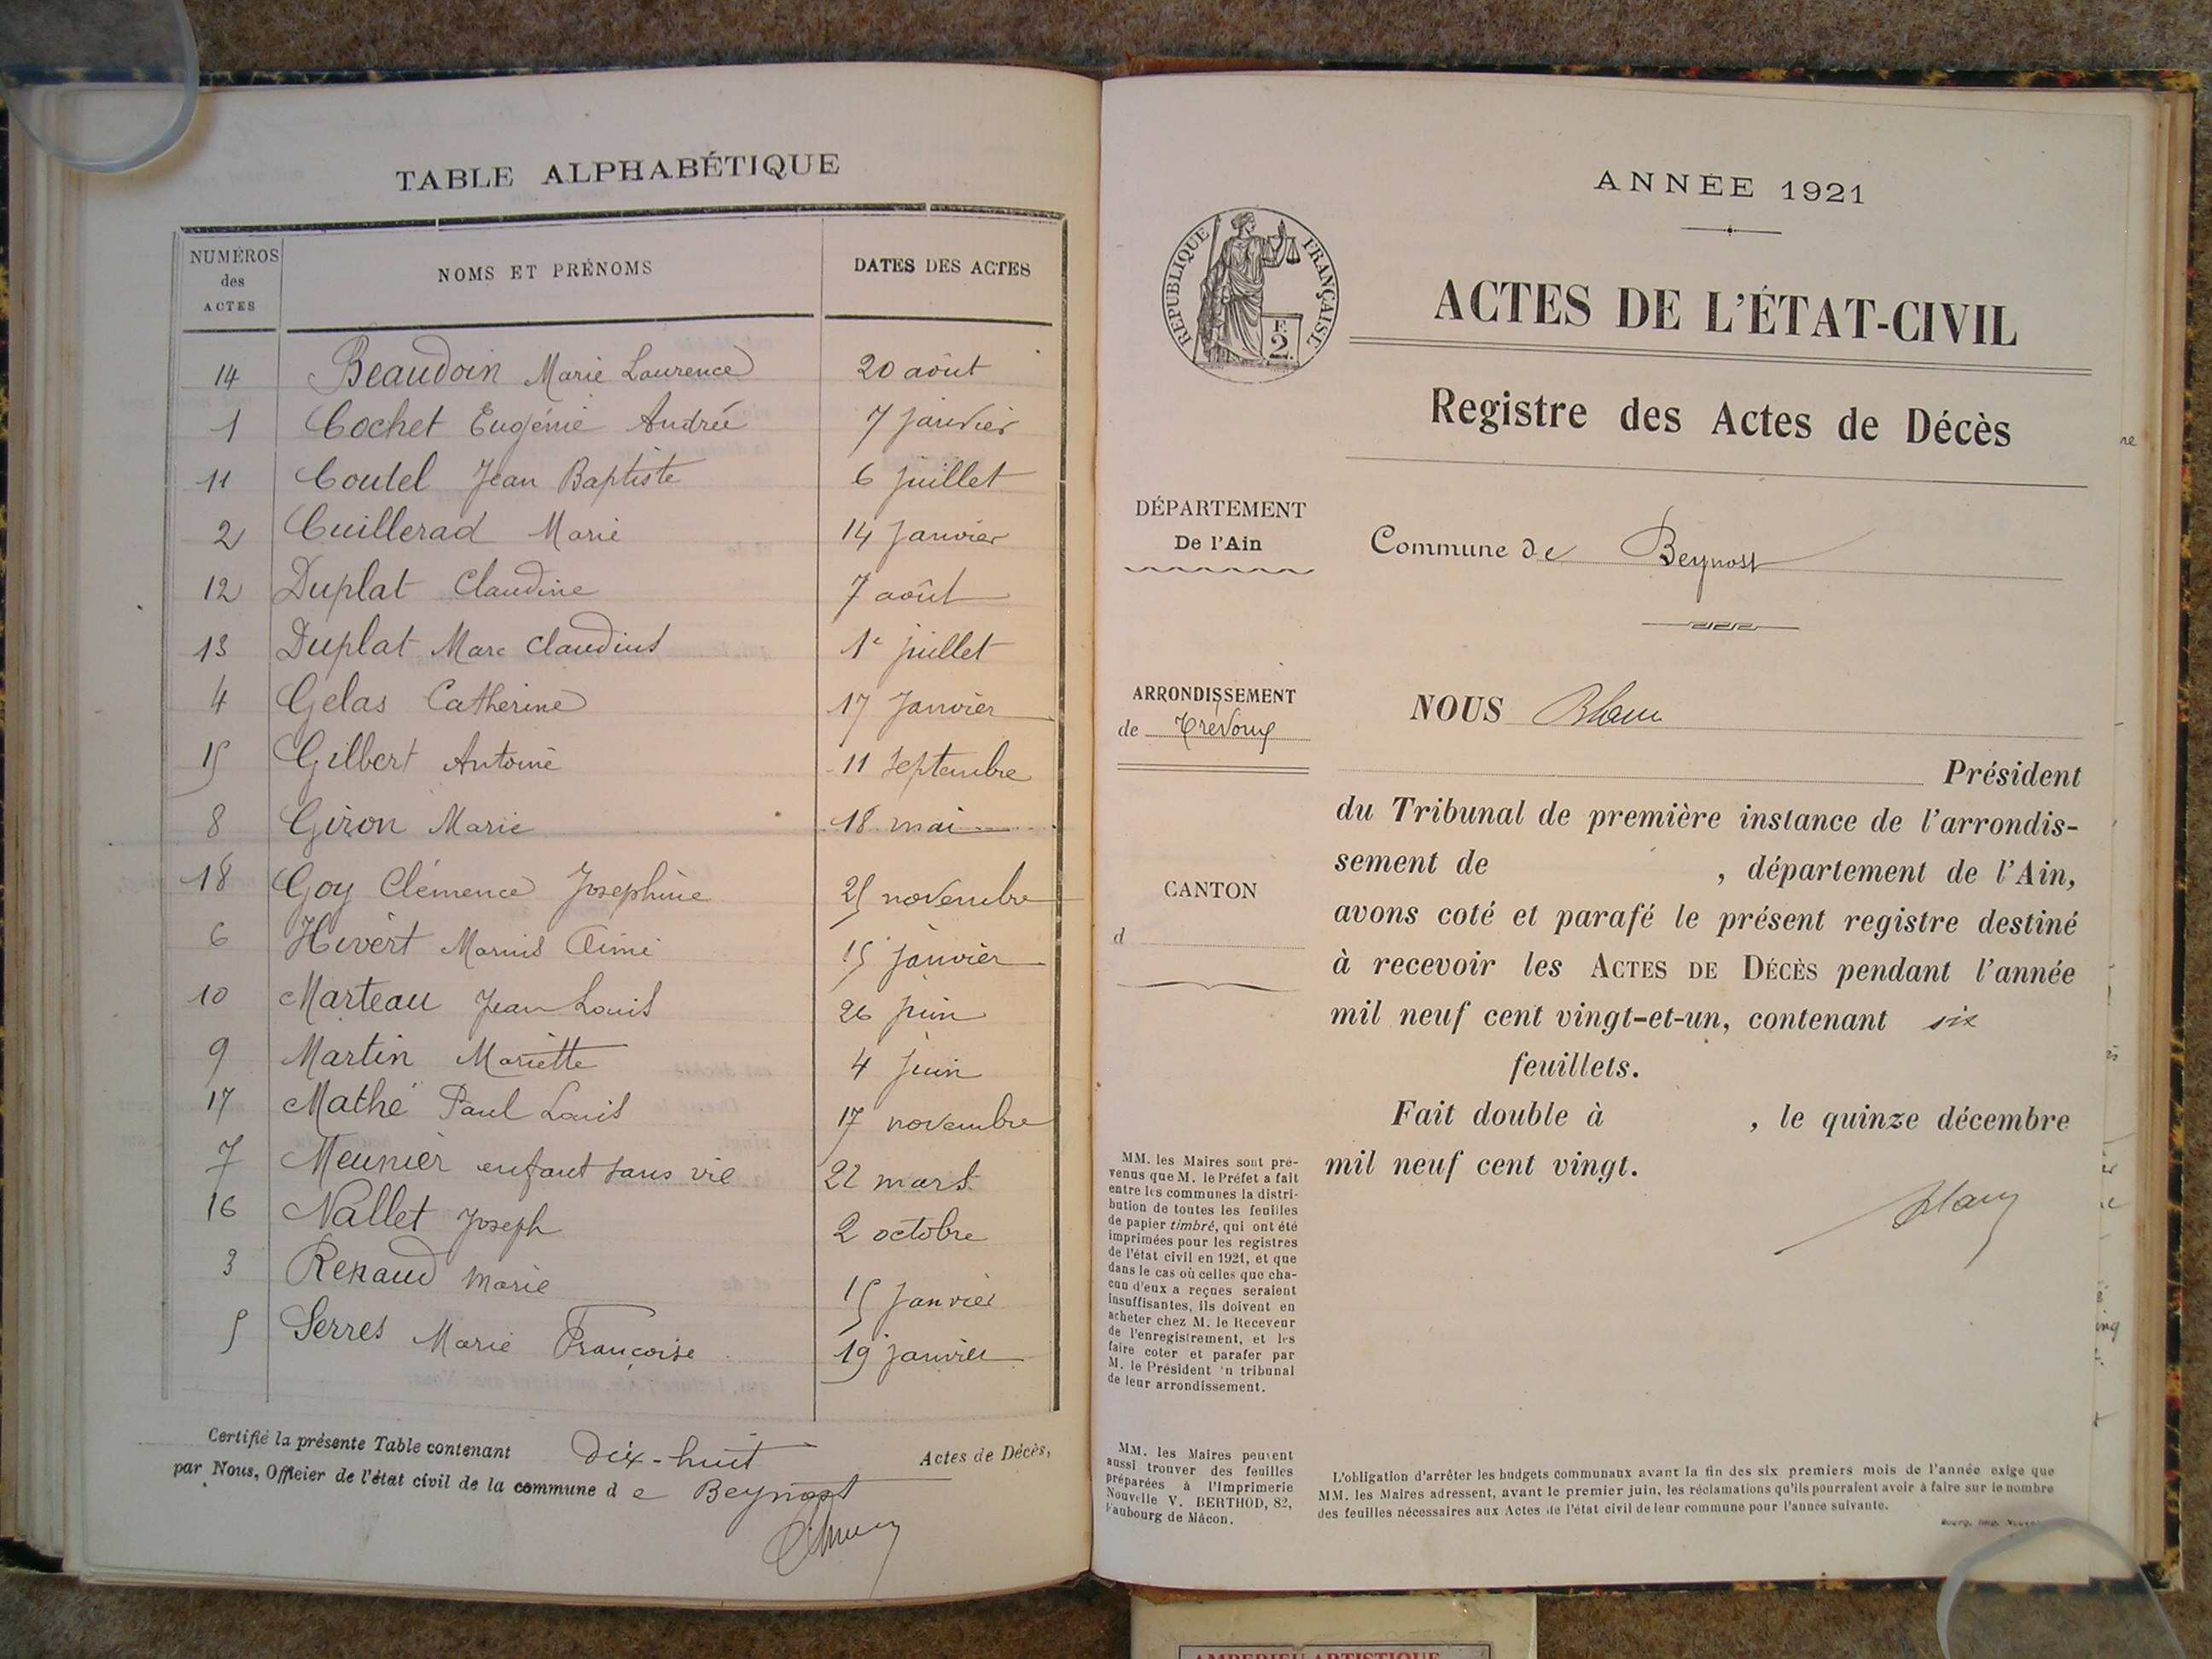 TABLE ALPHABÉTIQUE
NUMÉROS des ACTES NOMS ET PRÉNOMS DATES DES ACTES
14 Beaudoin Marie Laurence 20 août
1 Cochet Eugénie Andrée 7 janvier
11 Coutel Jean Baptiste 6 juillet
2 Cuillerad Marie 14 Janvier
12 Duplat Claudine 7 août
13 Duplat Marc Claudius 1e juillet
4 Gelas Catherine 17 Janvier
15 Gilbert Antoine 11 Septembre
8 Giron Marie 18 mai
18 Goy Clémence Josephine 25 novembre
6 Hivert Marius Aimé 15 janvier
10 Marteau Jean Louis 26 juin
9 Martin Mariette 4 juin
17 Mathé Paul Louis 17 novembre
7 Meunier enfant sans vie 22 mars
16 Nallet Joseph 2 octobre
3 Renaud Marie 15 Janvier
5 Serres Marie Françoise 19 janvier
Certifié la présente Table contenant Dix-huit Actes de Décès,
par Nous, Officier de l'état civil de la commune de Beynost
ANNÉE 1921
RÉPUBLIQUE FRANÇAISE
F.
2.
ACTES DE L'ÉTAT-CIVIL
Registre des Actes de Décès
DÉPARTEMENT
De l'Ain
Commune de Beynost
ARRONDISSEMENT
de Trévoux
CANTON
d
NOUS
Président
du Tribunal de première instance de l'arrondis-
sement de , département de l'Ain,
avons coté et parafé le présent registre destiné
à recevoir les ACTES DE DÉCÈS pendant l'année
mil neuf cent vingt-et-un, contenant six
feuillets.
Fait double à , le quinze décembre
mil neuf cent vingt.
MM. les Maires sont pré-
venus que M. le Préfet a fait
entre les communes la distri-
bution de toutes les feuilles
de papier timbré, qui ont été
imprimées pour les registres
de l'état civil en 1921, et que
dans le cas où celles que cha-
cun d'eux a reçues seraient
insuffisantes, ils doivent en
acheter chez M. le Receveur
de l'enregistrement, et les
faire coter et parafer par
M. le Président du tribunal
de leur arrondissement.
MM. les Maires peuvent
aussi trouver des feuilles
préparées à l'Imprimerie
Nouvelle V. BERTHOD, 82,
Faubourg de Mâcon.
L'obligation d'arrêter les budgets communaux avant la fin des six premiers mois de l'année exige que
MM. les Maires adressent, avant le premier juin, les réclamations qu'ils pourraient avoir à faire sur le nombre
des feuilles nécessaires aux Actes de l'état civil de leur commune pour l'année suivante.
AMBERIEU ARTISTIQUE